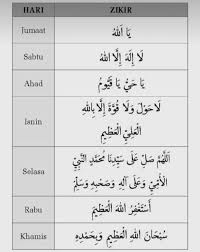 HARI ZIKIR
Jumaat يَا اَللهُ
Sabtu لَا إِلَهَ إِلَّا اللهُ
Ahad يَا حَيُّ يَا قَيُّوْمُ
Isnin لَا حَوْلَ وَلَا قُوَّةَ إِلَّا بِاللهِ
الْعَلِيِّ الْعَظِيْمِ
Selasa اَللَّهُمَّ صَلِّ عَلَى سَيِّدِنَا مُحَمَّدٍ النَّبِيِّ
الْأُمِّيِّ وَعَلَى آلِهِ وَصَحْبِهِ وَسَلِّمْ
Rabu أَسْتَغْفِرُ اللهَ الْعَظِيْمَ
Khamis سُبْحَانَ اللهِ الْعَظِيْمِ وَبِحَمْدِهِ